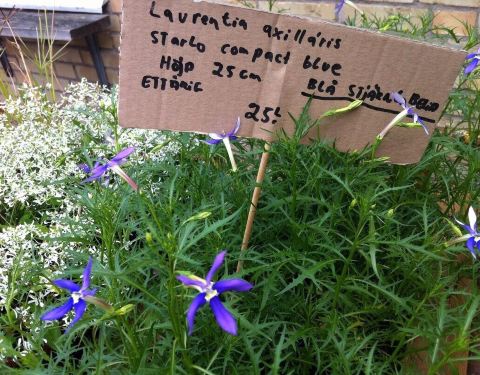 Laurentia axillaris
Starlo compact blue
Höjd 25cm
ETTÅRIG
BLÅ
25:-